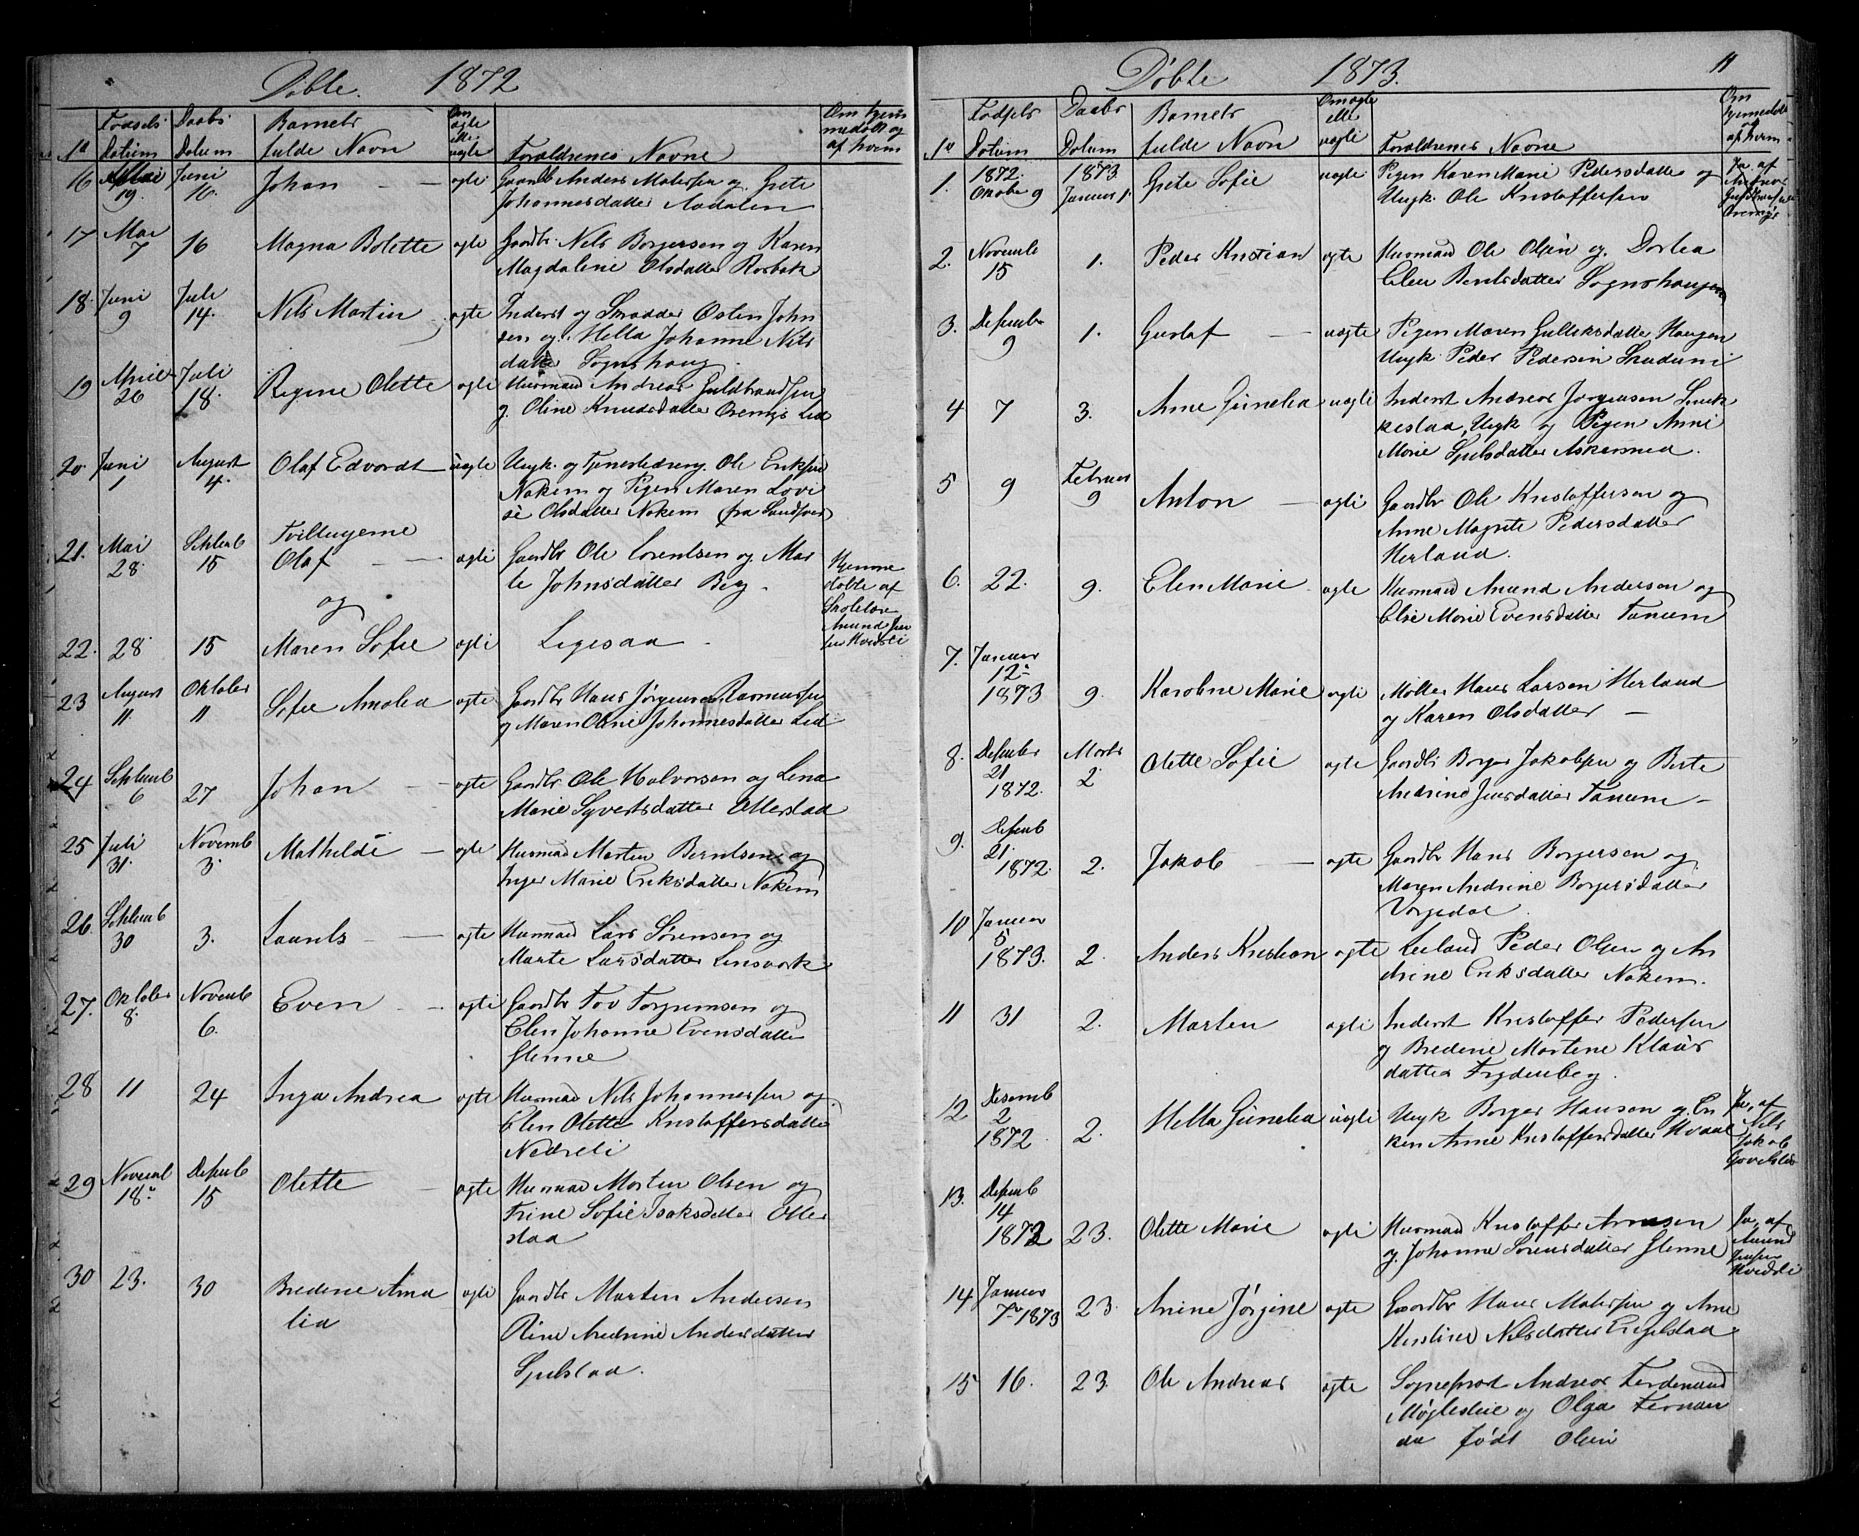 Døbte. 1872
No
Fødsels Datum
Daabs Datum
Barnets fulde Navn
Om ægte eller uægte
Forældrenes Navne
Om hjemmedøbt og af hvem
16 Mai 19. Juni 16. Johan - ægte Gaardb Anders Matisen og Grete
Johannesdatter Aadalen
17 Mai 7 16 Magna Bolette ægte Gaardbr. Nils Borgersen og Karen
Magdalene Olsdatter Rosbak
18. Juni 9 Juli 14. Nils Martin ægte Inderst og Skrædder Østen John
sen og Hella Johanne Nils
datter Sognshaug
19 April 26 Juli 18. Regine Olette ægte Husmand Andreas Guldbrandsen
og Oline Knudsdatter Overnes Lid
20. Juni 1 August 4. Olaf Edvardt uægte Ungk. og Tjenestedreng Ole Eriksen
Nøkem og Pigen Maren Lovi
se Olsdatter Nøkem fra Sandsvær
21. Mai 28. Septemb 15 Tvillingerne
Olaf - ægte Gaardbr Ole Lorentsen og Mar
te Johnsdatter Berg
og
Hjemme
døbte af
Skolelærer
Amund Jen
sen Kvidsli
22. 28. 15 Maren Sofie ægte Ligesaa
23 August 11 Oktober 11 Sofie Amalia ægte Gaardbr Hans Jørgensen Rasmussen
og Maren Oline Johannesdatter Lid
24 Septemb 6 27 Johan - ægte Gaardbr Ole Halvorsen og Lena
Marie Syvertsdatter Ellestad
25 Juli 31. Novemb 3. Mathilde - ægte Husmand Morten Berntsen og
Inger Marie Eriksdatter Nøkem
26. Septemb 30 3. Laurits - ægte Husmand Lars Sørensen og
Marte Larsdatter Linsværk
27. Oktober 8. Novemb 6. Even - ægte Gaardbr Tov Torgrimsen og
Elen Johanne Evensdatter
Glenne
28 11 24 Inga Andrea ægte Husmand Nils Johannessen og
Elen Olette Kristoffersdatter
Nedreli
29 Novemb 18. Desemb 15 Olette - ægte Husmand Morten Olsen og
Trine Sofie Isaksdatter Elle
stad
30 23. 30 Bredine Ama
lia ægte Gaardbr Morten Andersen
Rine Andrine Andersdatter
Gjulstad.
Døbte 1873. 11
No
Fødsels Datum
Daabs Datum
Barnets fulde Navn
Om ægte eller uægte
Forældrenes Navne
Om hjemmedøbt og af hvem
1. 1872. Oktobe 9 1873 Januar 1. Grete Sofie uægte Pigen Karen Marie Pedersdatter og
Ungk. Ole Kristoffersen
Ja, af
Andreas
2. Novemb 15 1. Peder Kristian ægte Husmand Ole Olsen og Dorthea
Elen Berntsdatter Sognshaugen
3. Desember 9 1. Gustaf - uægte Pigen Maren Gulleksdatter Haugen
Ungk. Peder Pedersen
4 7 3. Anne Gunelia uægte Inderst Andreas Jørgensen
Ungk og Pigen Anne
Marie Gjulsdatter
5 9 Februar 9 Anton - ægte Gaardbr Ole Kristoffersen og
Anne Magrete Pedersdatter
Herland.
6. 22. 9. Elen Marie ægte Husmand Amund Andersen og
Else Marie Evensdatter Tanum
7. Januar 12. 1873 9. Karoline Marie ægte Møller Hans Larsen Herland
og Karen Olsdatter -
8. Desember 21 1872. Marts 2 Olette Sofie ægte Gaardbr Borger Jakobsen og Berte
Andrine Jensdatter Tanum -
9. Desemb 21. 1872. 2. Jakob - ægte Gaardbr Hans Borgersen og
Maren Andrine Borgersdatter
Vorgedal
10 Januar 5 1873. 2. Anders Kristian ægte Leiland. Peder Olsen og An
drine Eriksdatter Nøkem.
11 31 2. Marten ægte Inderst Kristoffer Pedersen
og Bredine Martine Klaus
datter Frydenberg.
12 Desemb 2 1872. 2. Hella Gunelia uægte Ungk Borger Hansen og En
ken Anne Kristoffersdatter Hvaale
Ja, af
Nils
Jakob
13. Desemb 14 1872 23. Olette Marie ægte Husmand Kristoffer Arnesen
og Johanne Sørensdatter Glenne
Ja, af
Amund
Jensen
Kvidsli
14 Januar 7. 1873 23. Anine Jørgine ægte Gaardbr Hans Matissen og Anne
Kirstine Nilsdatter Engelstad
15 16. 23. Ole Andreas ægte Sogneprest Andreas Ferdinand
Møglestue og Olga Fernan
da født Olsen